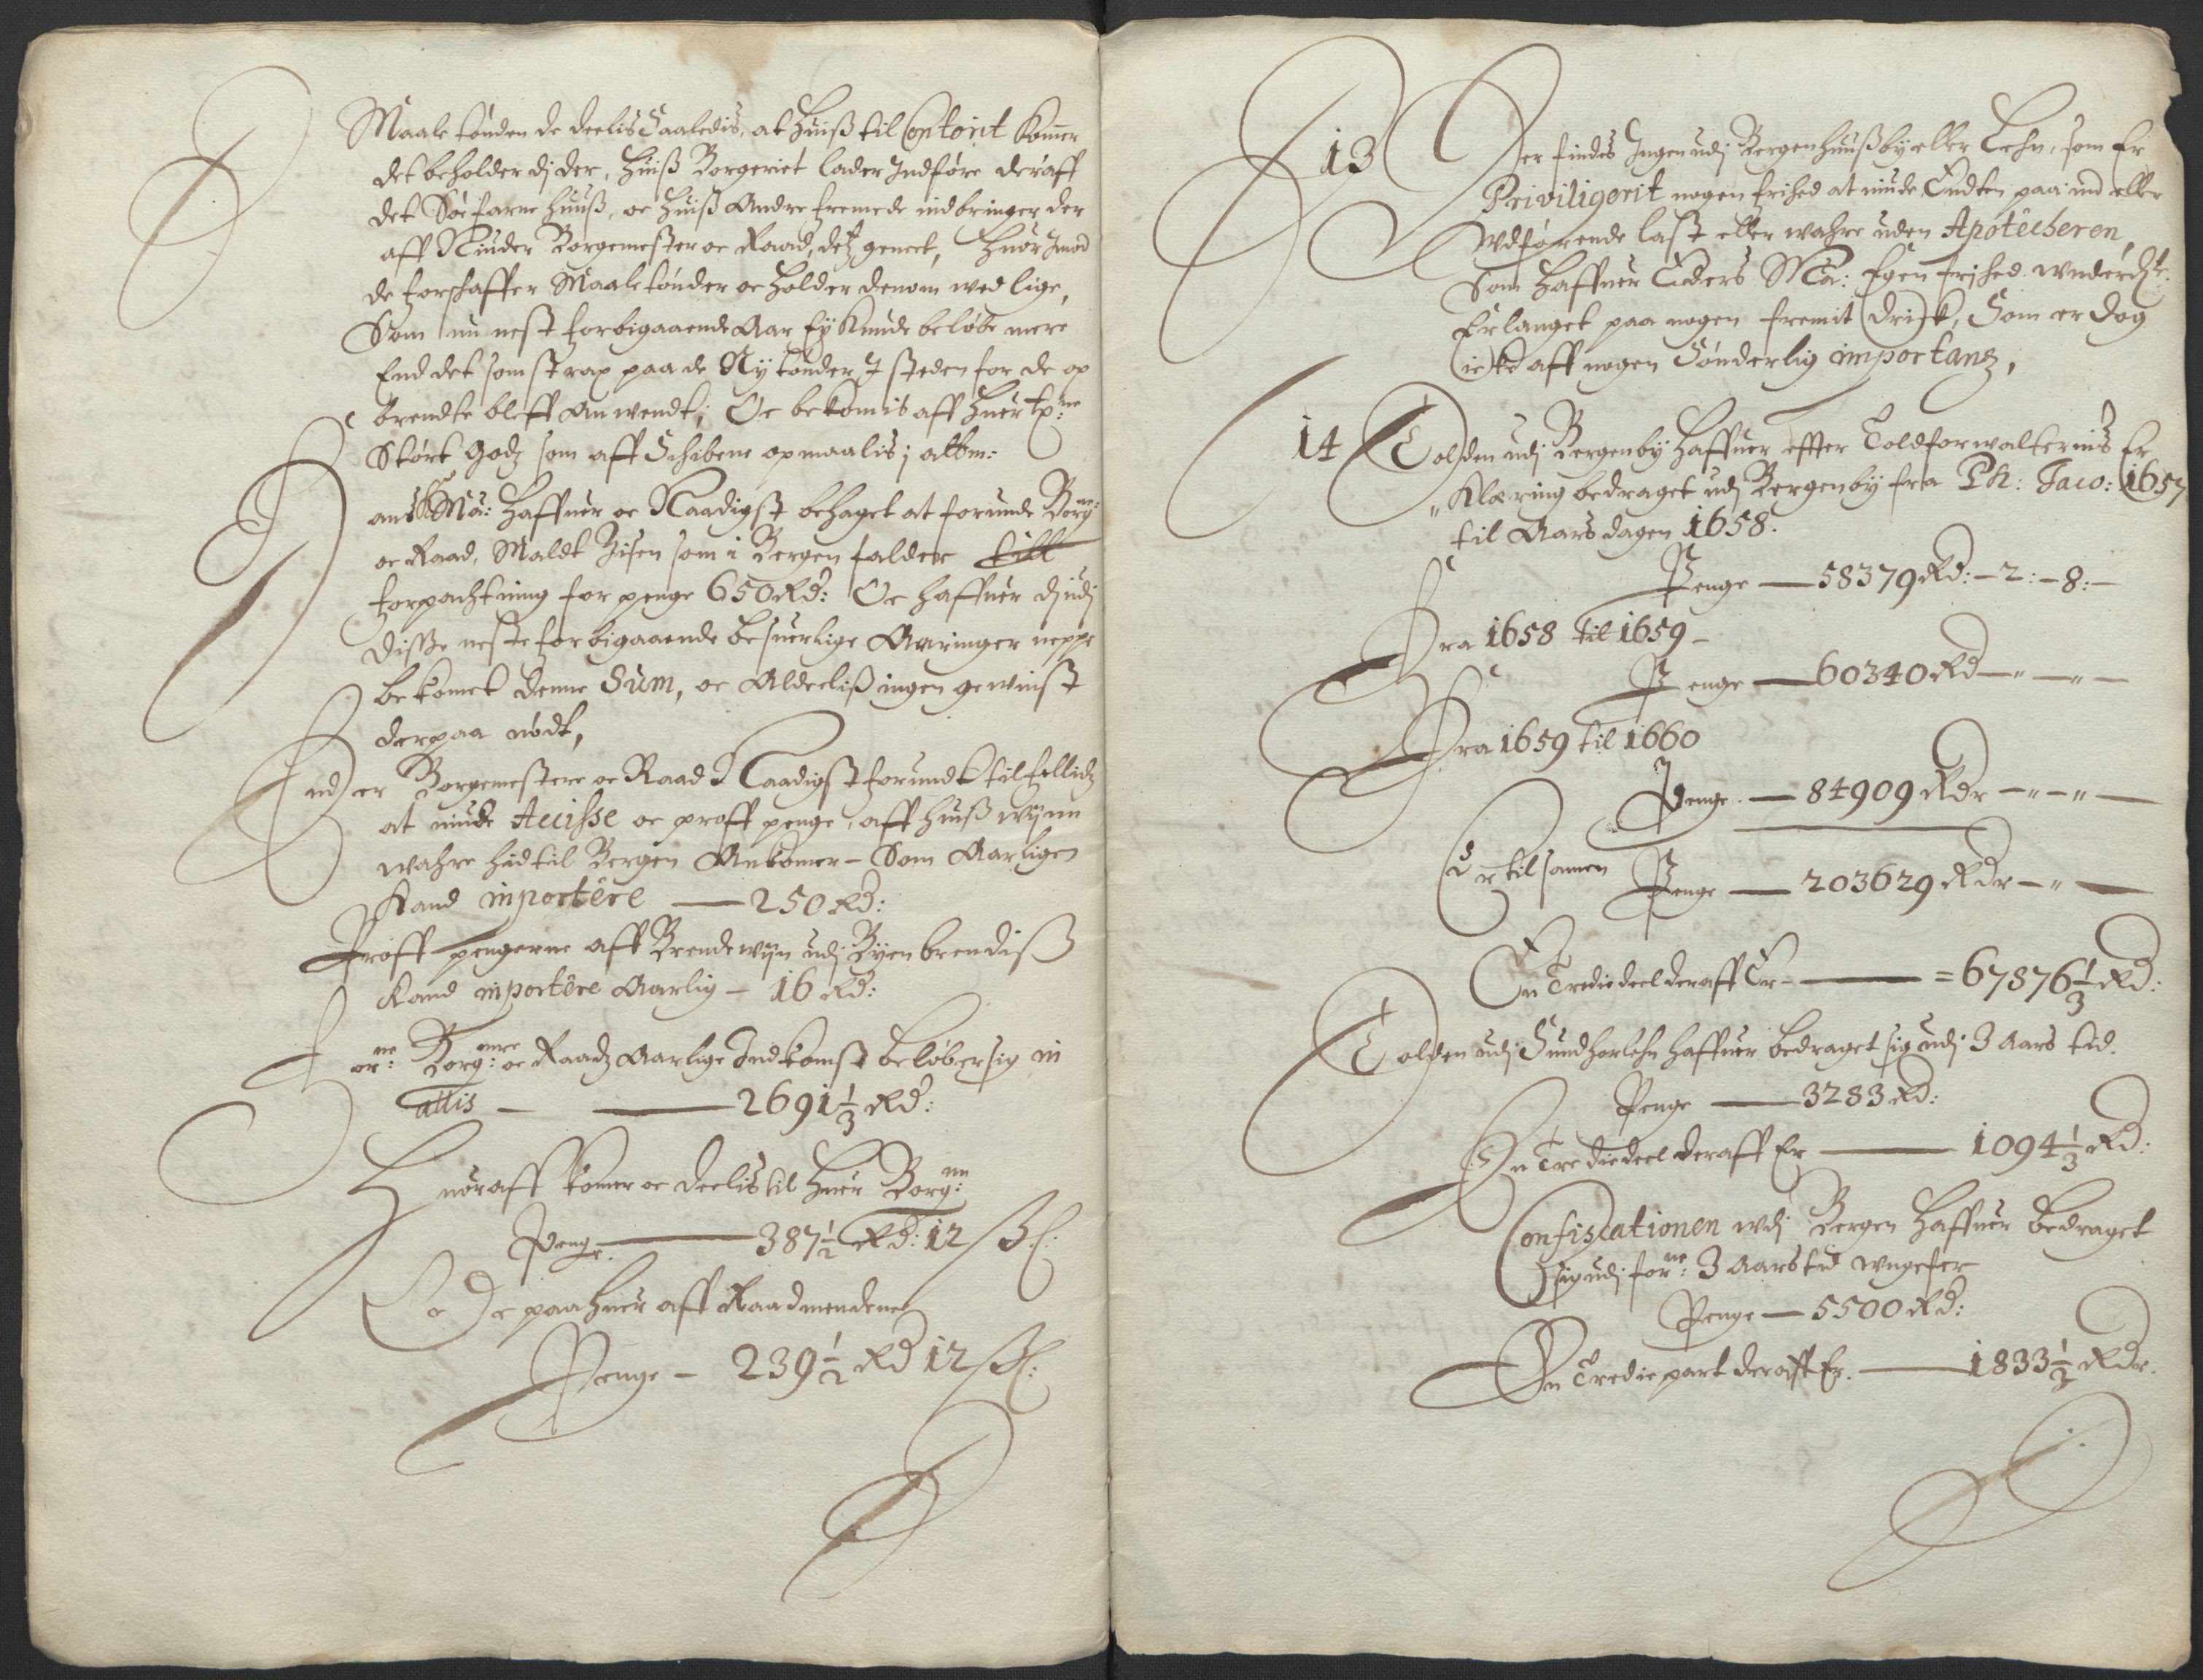 Maale tønden de deelis Saaledis, at huiß til Contorit komer
det beholder dj der, huiß Borgeriet lader Indføre deraff
det Søefarne huuß, oc huiß Andre fremede indbringer der
aff Niuder Borgemester oc Raad, detz geneet, Huor Imod
de forschaffer Maale tønder oc holder denom wed lige,
Som nu nest forbigaaende Aar Ey kunde beløbe mere
End det som strax paa de Ny tønder I steden for de op
brendte bleff Anwendt; Oc bekomis aff huer
Stört godz som aff Schibene opmaalis j
ans Ma: Haffuer oc Naadigst behaget at forunde Borg:
oc Raad, Maldt Zisen som i Bergen falder till
forpachtning for penge 650 Rd: Oc haffuer dj udj
diße neste forbigaaende besuerlige Aaringer neppe
bekomet denne Sum, oc Aldeeliß ingen gewinst
derpaa nødt,
nd er Borgemestere oc Raad Naadigst forundt tilfellidz
at niude Accisse oc proff penge, aff huiß wijnn
wahre hid til Bergen Ankomer - Som Aarligen
Kand inportêre — 250 Rd:
Proff pengerne aff Brendewijn udj Byen brendiß
Kand inportêre Aarlig - 16 Rd:
or:ne Borg:mre oc Raadz Aarlige Indkomst beløber sig in
allis — 2691 1/3 Rd:
Huoraff komer oc deelis til huer Borg:
Penge — 387 1/2 Rd: 12 ß:
Oc paa huer aff Raadmendene
Penge - 239 1/2 Rd 12 ß:
13 Der findes Ingen udj Bergenhuuß by eller Lehn, som Er
Priviligerit nogen frihed at niude Endten paa ind eller
Wdførende last eller wahre uden Apotêcheren,
Som Haffuer Eders Ma: Egen frihed
Erlanget paa nogen fremit drick, Som er dog
icke aff nogen Sönderlig importanz,
14 Tolden udj Bergen by Haffuer effter Toldforwalternis Er
Klæring bedraget udj Bergen by fra Ph: Jaco: 1657
til Aarsdagen 1658.
Penge — 58379 Rd: - 2: - 8: -
Fra 1658 til 1659 -
Penge — 60340 Rd — " — " —
Fra 1659 til 1660
Penge — 84909 Rdr — " — " —
Er tilsamen Penge — 203629 Rdr — " —
En Tredie deel deraff Er — = 67876 1/3 Rd:
Tolden udj Sundhorlehn haffuer bedraget sig udj 3 Aars tid.
Penge — 3283 Rd:
En Tredie deel deraff Er — 1094 1/3 Rd:
Confiscationen wdj Bergen haffuer bedraget
sig udj for:ne 3 Aars tid wngefer
Penge — 5500 Rd:
En Tredie part deraff Er. — 1833 1/2 Rdr.